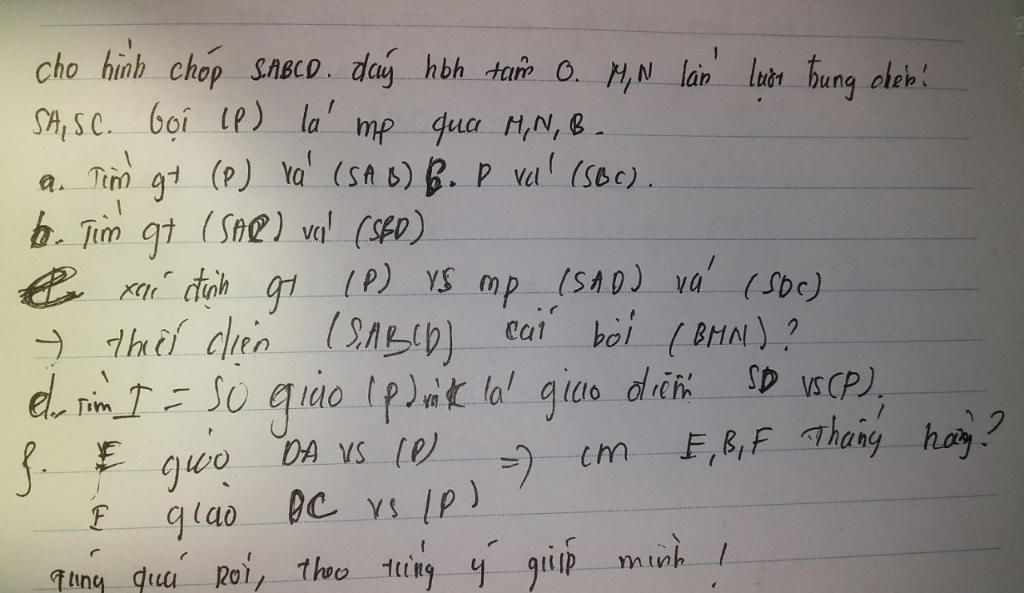 cho hình chóp S.ABCD. đáy hbh tâm O. M,N lần lượt trung điểm
SA,SC. Gọi (P) là mp qua M,N,B.
a. Tìm gt (P) và (SAB) P và (SBC).
b. Tìm gt (SAC) và (SBD)
xác định gt (P) vs mp (SAD) và (SDC)
→ thiết diện (S.ABCD) cắt bởi (BMN)?
d. Tìm I = SO giao (P) và K là giao điểm SD vs (P).
f. E giao DA vs (P) ⇒ cm E,B,F thẳng hàng?
F giao DC vs (P)
quá rồi, theo từng ý giúp mình!